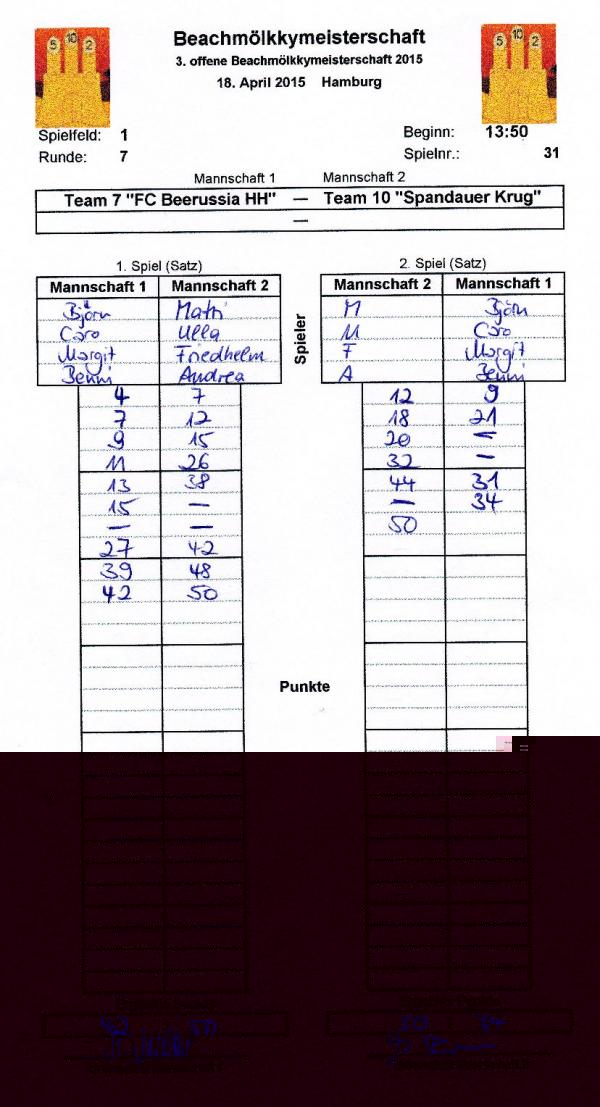 Beachmölkkymeisterschaft
3. offene Beachmölkkymeisterschaft 2015
18. April 2015 Hamburg
5 10 2
5 10 2
Spielfeld: 1
Beginn: 13:50
Runde: 7
Spielnr.: 31
Mannschaft 1 Mannschaft 2
Team 7 "FC Beerussia HH" — Team 10 "Spandauer Krug"
—
1. Spiel (Satz)
Mannschaft 1 Mannschaft 2
Björn
Caro Ulla
Margit Friedhelm
Benni Andrea
4 7
7 12
9 15
11 26
13 38
15 —
— —
27 42
39 48
42 50
Spieler
2. Spiel (Satz)
Mannschaft 2 Mannschaft 1
M Björn
U Caro
F Margit
A Benni
12 9
18 21
20 —
32 —
44 31
— 34
50
Punkte